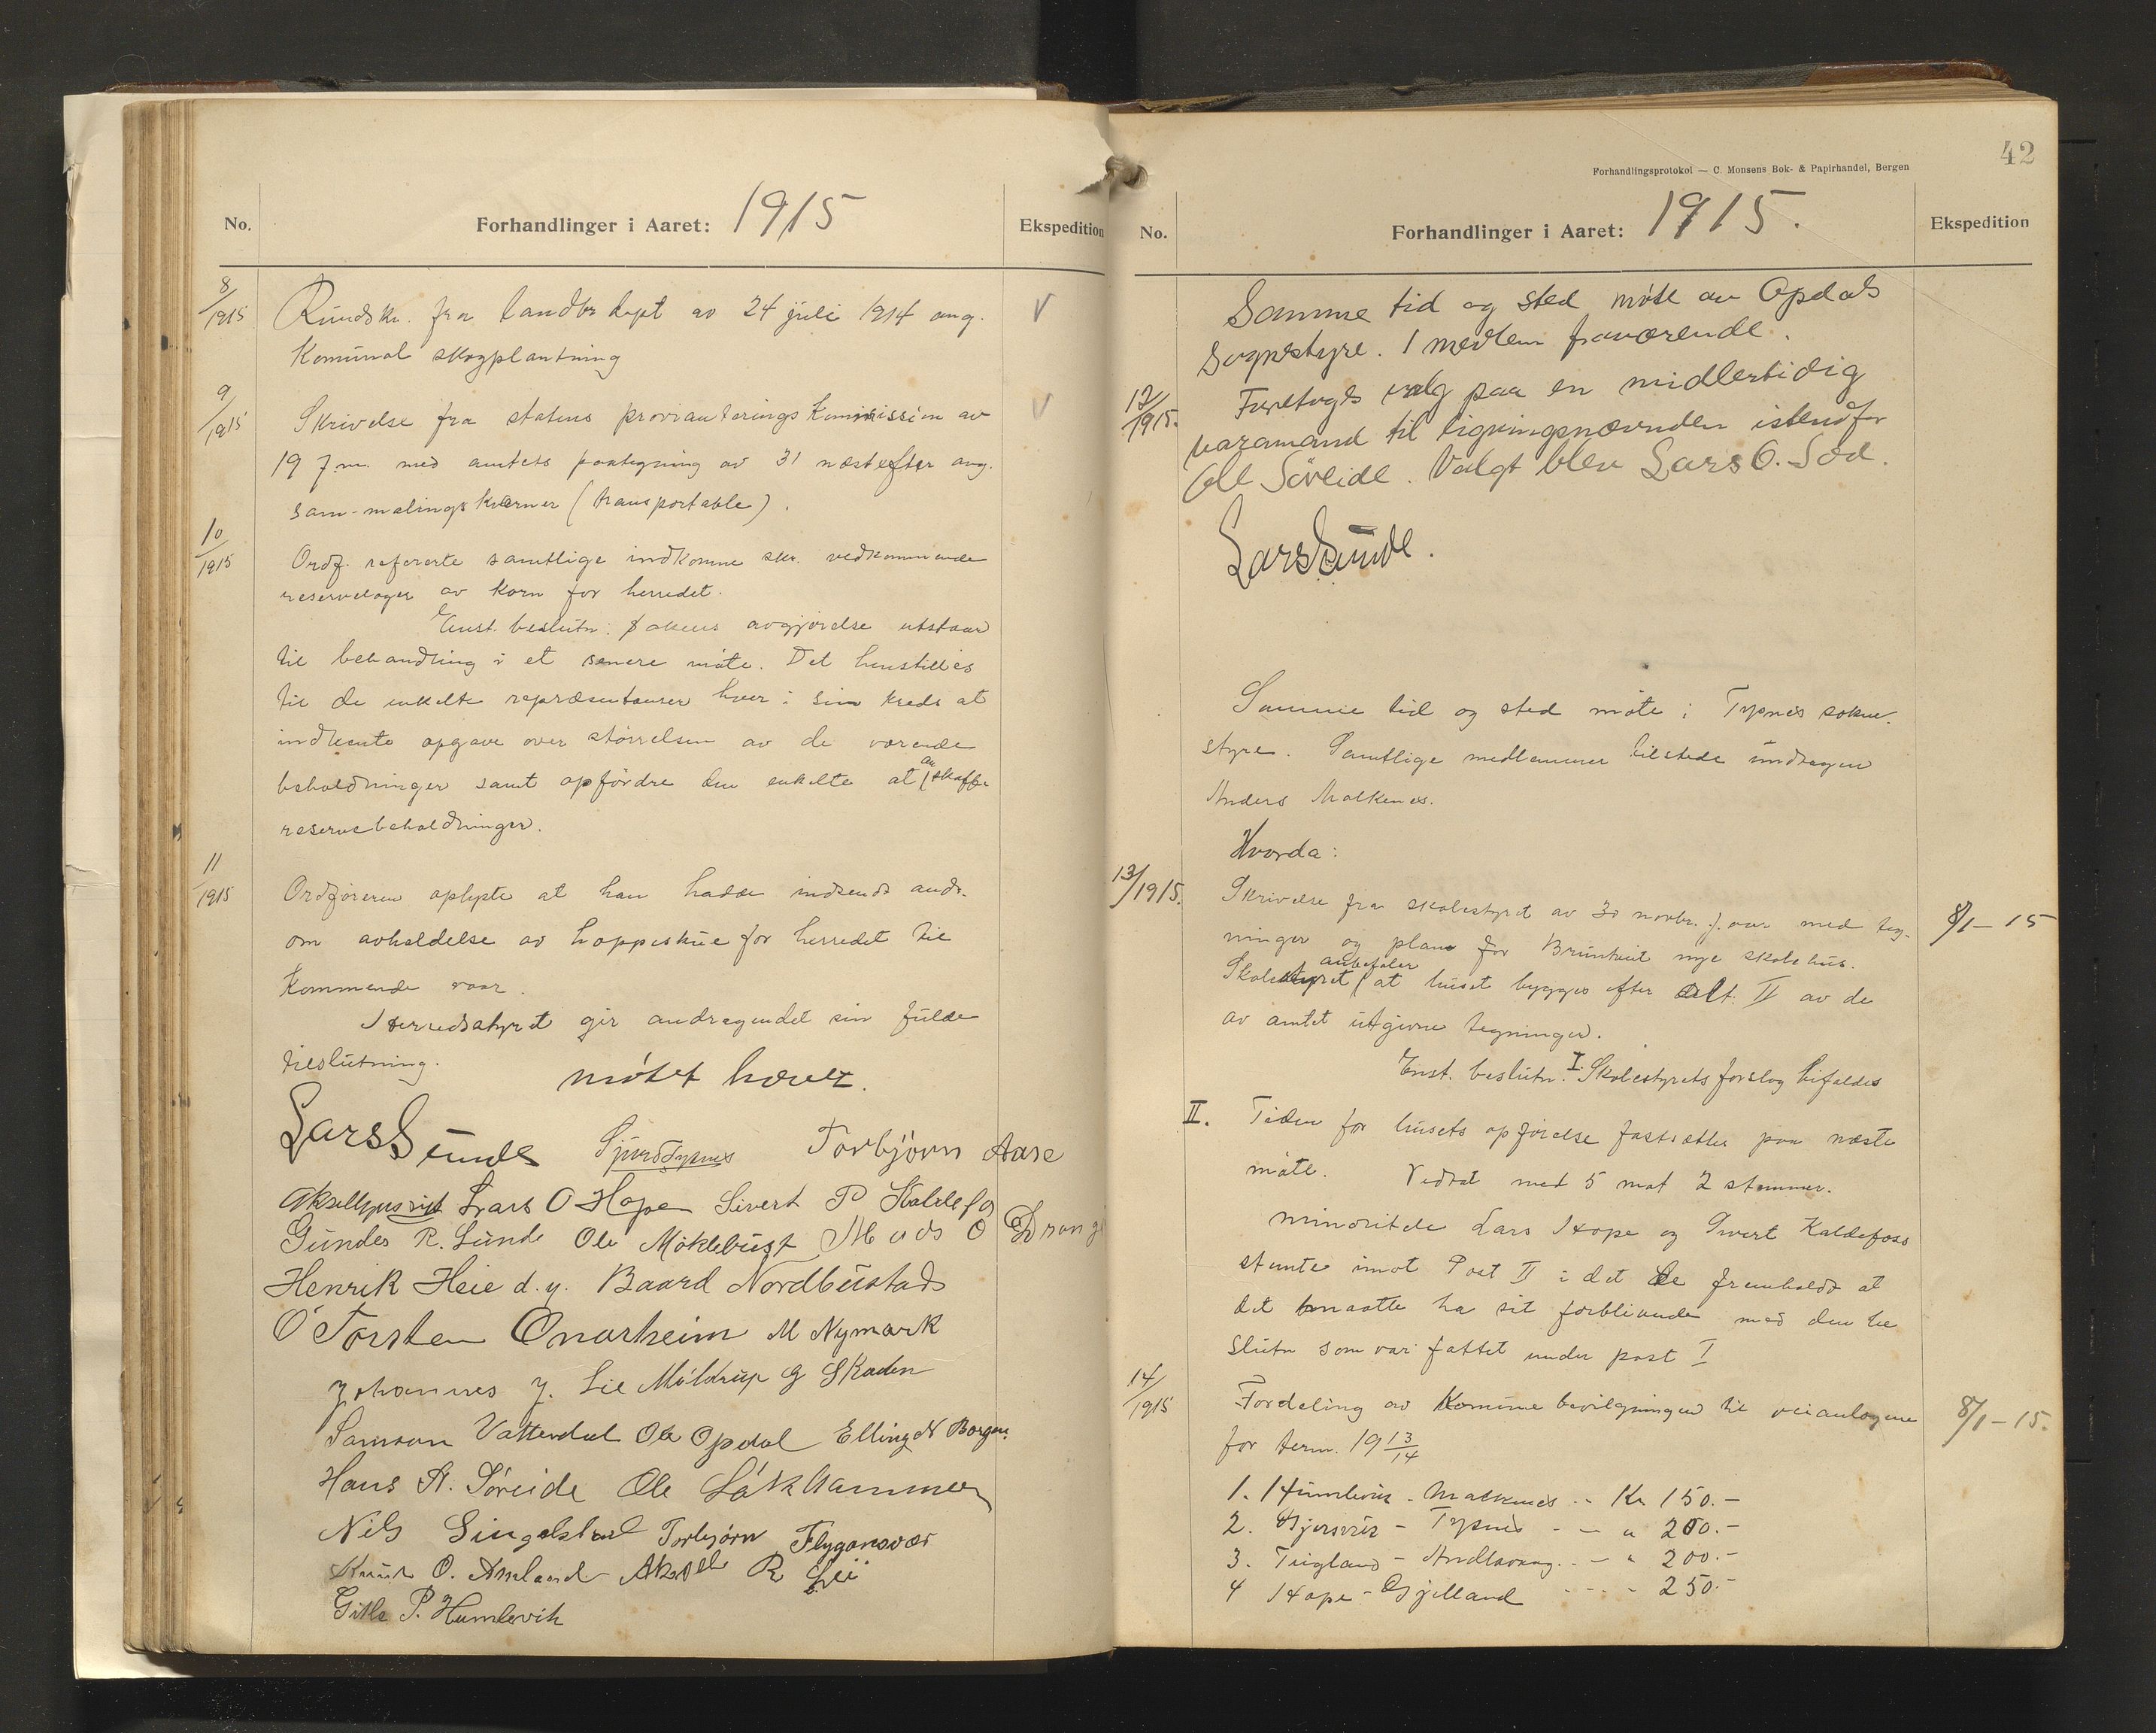 No.
Forhandlinger i Aaret: 1915
Ekspedition
8/1915
Rundskr. fra landbr dept av 24 juli 1914 ang.
V
Komunal skogplantning
9/1915
Skrivelse fra statens provianteringskommission av
V
19 f.m. med amtets paategning av 31 næstefter ang.
sam-malingskværner (transportable).
10/1915
Ordf. refererte samtlige indkomne skr. vedkommende
reservelager av korn for herredet.
Enst. beslutn: Sakens avgjørelse utstaar
til behandling i et senere møte. Det henstilles
til de enkelte repræsentanter hver i sin kreds at
indhente opgave over størrelsen av de værende
beholdninger samt opfordre den enkelte at anskaffe
reservebeholdninger.
11/1915
Ordføreren oplyste at han hadde indsendt andr.
om avholdelse av hoppeskue for herredet til
kommende vaar.
Herredsstyret gir andragendet sin fulde
tilslutning.
møtet hævet.
Lars Sunde Sjurd Tysnes Torbjørn Aase
Lars O Hope Sivert P Kaldefos
Gunder R. Lunde Ole Møklebust Mads O Drange
Henrik Heie d.y. Baard Nordbustad
O Torsten Onarheim M Nymark
Johannes J. Lie Møldrup G Skaden
Samson Vattendal Ole Opdal Elling N Borgen.
Hans A. Søreide Ole Løkhammer
Nils Singelstad Torbjørn Flygansvær
Knut O. Aksel R Lie
Gitle P. Humlevik
42
Forhandlingsprotokol — C. Monsens Bok- & Papirhandel, Bergen
No.
Forhandlinger i Aaret: 1915.
Ekspedition
Samme tid og sted møte av Opdals
Sognestyre. 1 medlem fraværende.
12/1915.
Foretoges valg paa en midlertidig
varamand til ligningsnævnden istedfor
Ole Søreide. Valgt blev Lars O. Sæd.
Lars Sunde.
Samme tid og sted møte i Tysnes sokne-
styre. Samtlige medlemmer tilstede undtagen
Anders Malkenes.
Hvorda:
13/1915.
Skrivelse fra skolestyret av 30 novbr. f. aar med teg-
8/1-15
ninger og plan for Bruntveit nye skolehus.
Skolestyret anbefaler at huset bygges efter alt. II av de
av amtet utgivne tegninger.
Enst. beslutn: I. Skolestyrets forslag bifaldes
II. Tiden for husets opførelse fastsættes paa næste
møte. Vedtat med 5 mot 2 stemmer.
Minoritete Lars Hope og Sivert Kaldefoss
stemte imot Post II i det de fremholdt at
det maatte ha sit forblivende med den be
slutn som var fattet under post I
14/1915
Fordeling av Komunebevilgningen til veianlagene
8/1-15.
for term. 19 13/14
1. Humlevik - Malkenes - - Kr. 150.-
2. Gjersvik - Tysnes - - " 200.-
3. Teigland - Andlavaag. - - " 200.-
4 Hope - Gjelland - - - - 250.-